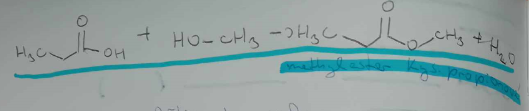 H₃C O OH + HO-CH₃ → H₃C O O CH₃ + H₂O
methylester kys. propionové